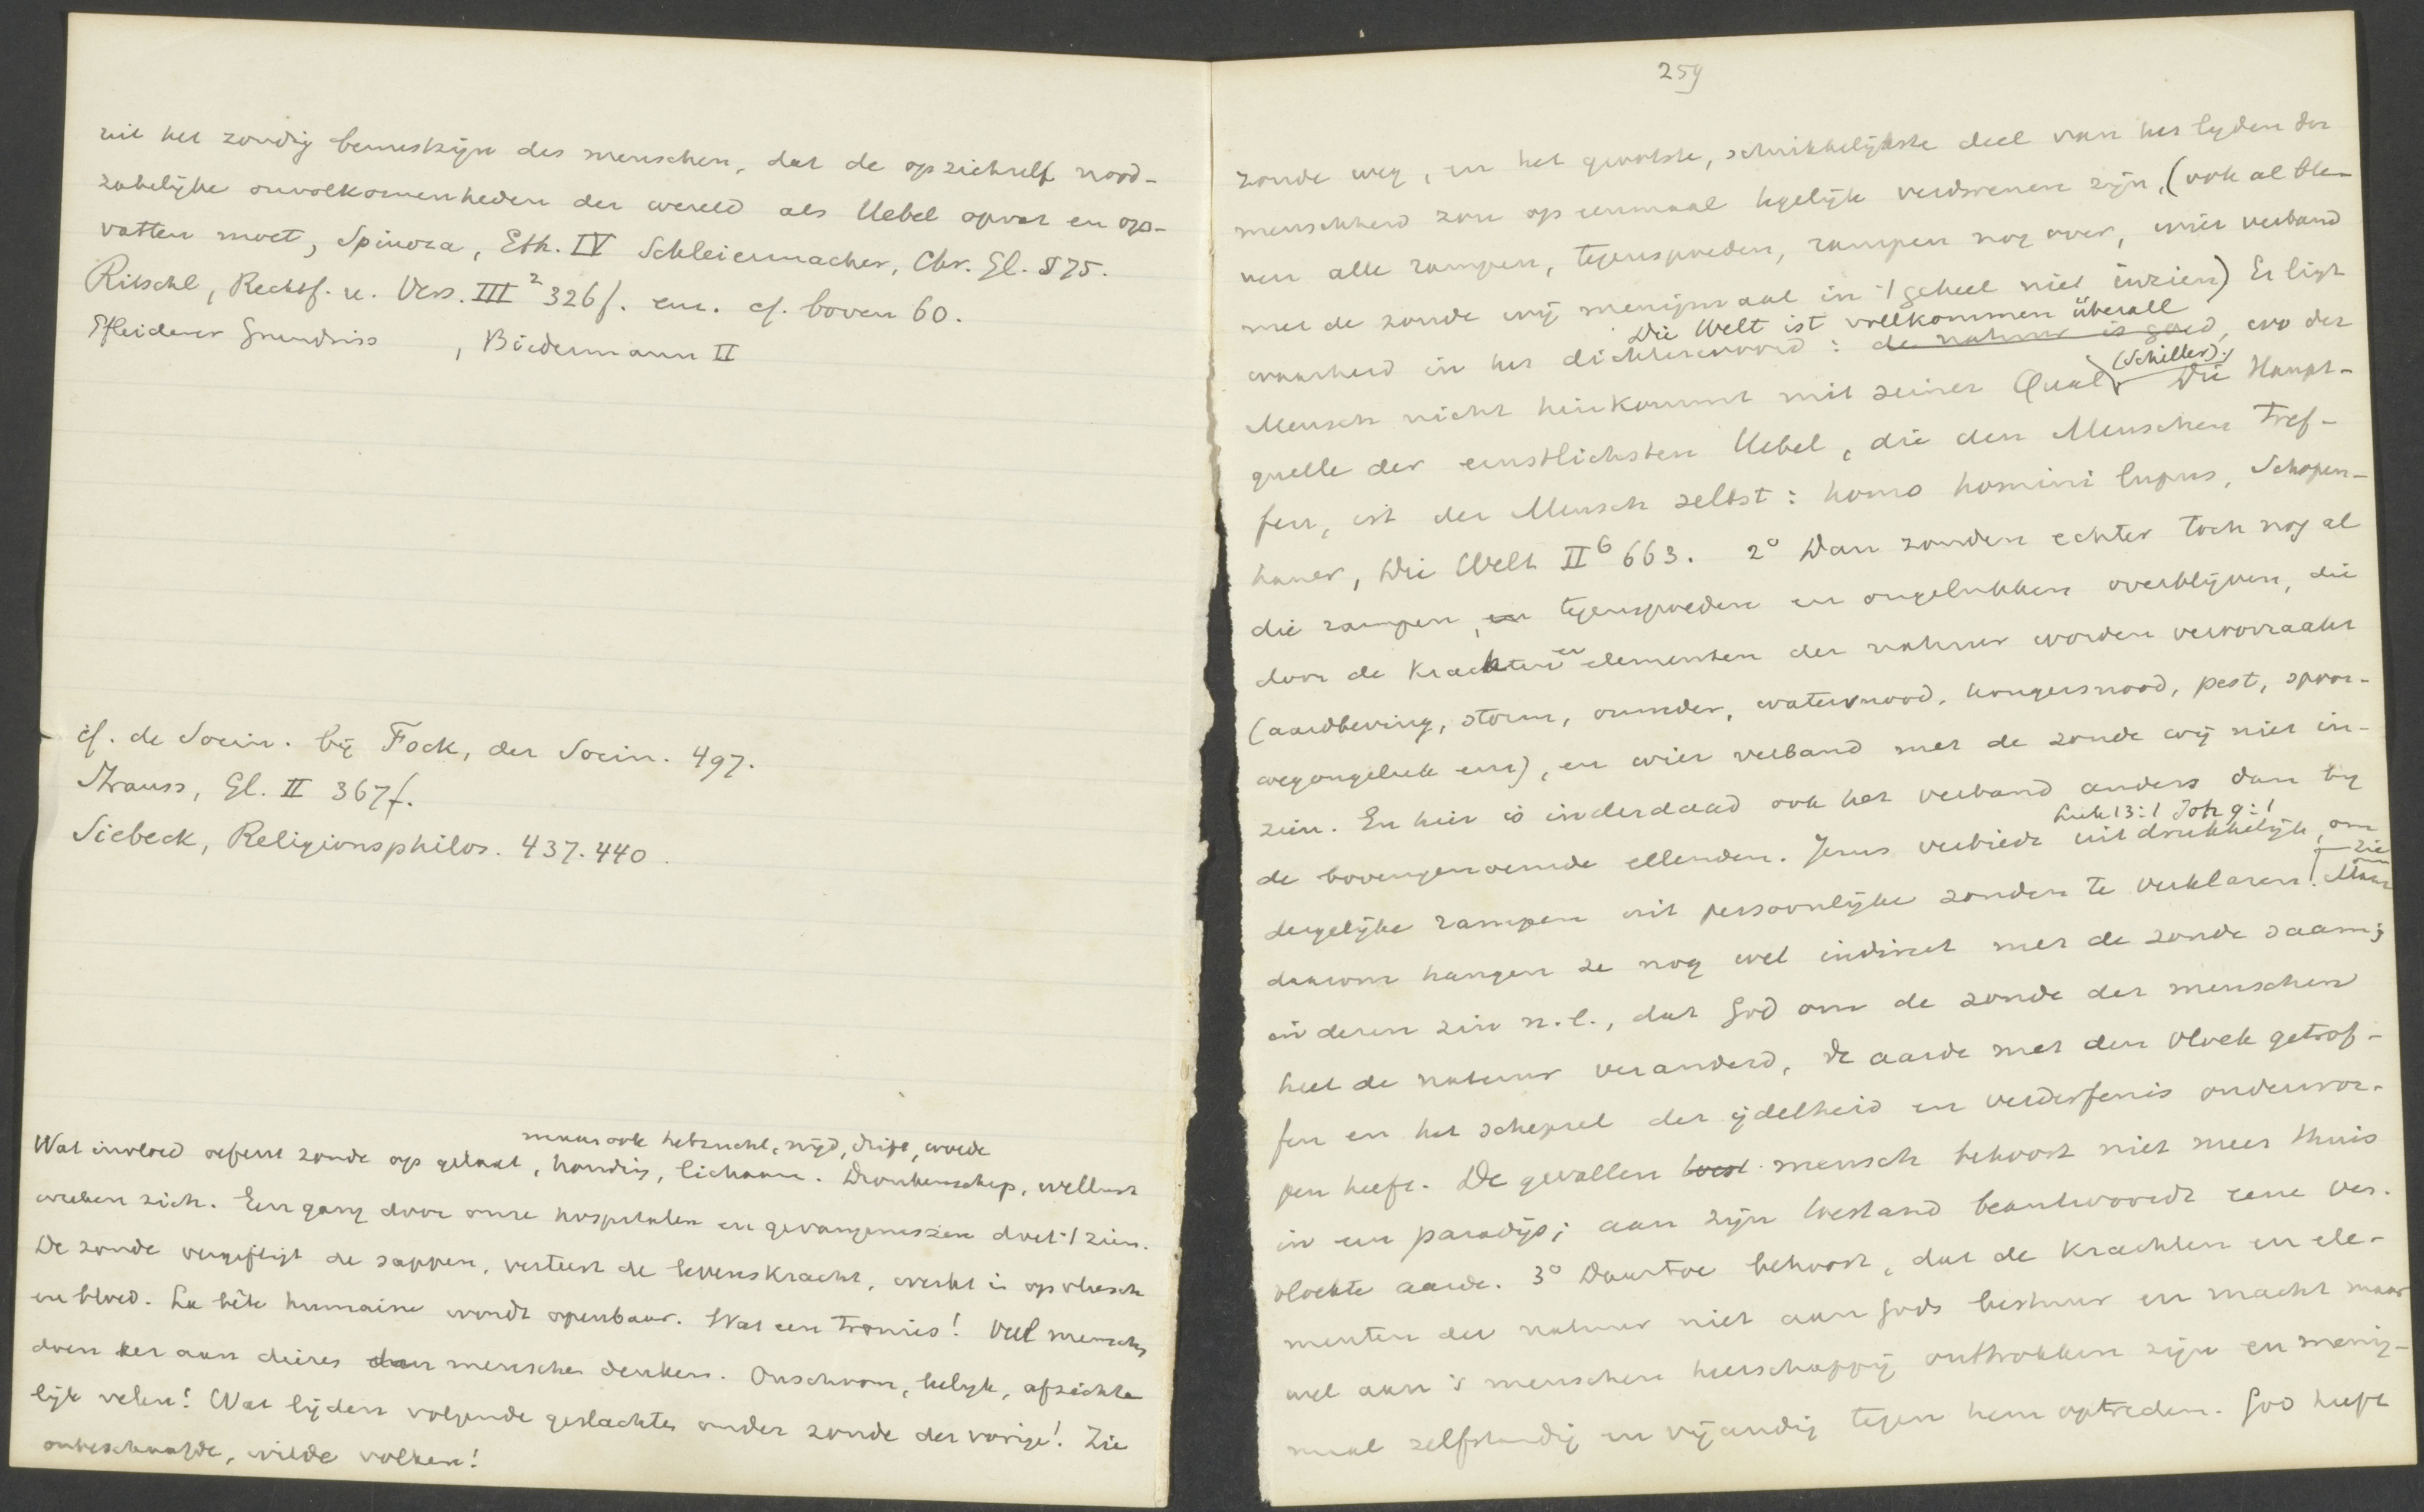 uit het zondig bewustzijn des menschen, dat de op zichself nood-
zakelijke onvolkomenheden der wereld als Uebel opvat en op-
vatten moet, Spinoza, Eth. IV Schleiermacher, Chr. Gl. § 75.
Ritschl, Rechtf. u. Vers. III² 326 f. enz. cf. boven 60.
Pfleiderer Grundriss , Biedermann II
cf. de Socin. bij Fock, der Socin. 497.
Strauss, Gl. II 367 f.
Siebeck, Religionsphilos. 437. 440.
maar ook hebzucht, nijd, drift, woede
Wat invloed oefent zonde op gelaat, houding, lichaam. Dronkenschap, wellust
wreken zich. Een gang door onze hospitalen en gevangenissen doet 't zien.
De zonde vergiftigt de sappen, verteert de levenskracht, werkt in op vleesch
en bloed. La bête humaine wordt openbaar. Wat een tronies! Veel menschen
doen eer aan dieren dan menschen denken. Onschoon, lelijk, afzichte
lijk velen! Wat lijden volgende geslachten onder zonde der vorige! Zie
onbeschaafde, wilde volken!
259
zonde weg, en het grootste, schrikkelijkste deel van het lyden der
menschheid zou op eenmaal tegelijk verdwenen zijn, (ook al ble-
ven alle rampen, tegenspoeden, rampen nog over, wier verband
met de zonde wij menigmaal in 't geheel niet inzien) Er ligt
Die Welt ist vollkommen überall
waarheid in het dichterwoord: de natuur is goed, wo der
(Schiller).
Mensch nicht hinkommt mit seiner Qual. Die Haupt-
quelle der ernstlichsten Uebel, die den Menschen tref-
fen, ist der Mensch selbst: homo homini lupus, Schopen-
hauer, Die Welt II⁶ 663. 2° Dan zouden echter toch nog al
die rampen, en tegenspoeden en ongelukken overblijven, die
door de krachten en elementen der natuur worden veroorzaakt
(aardbeving, storm, onweder, watersnood, hongersnood, pest, spoor-
wegongeluk enz), en wier verband met de zonde wij niet in-
zien. En hier is inderdaad ook het verband anders dan by
Luk 13:1 Joh 9:1
de bovengenoemde ellenden. Jezus verbiedt uitdrukkelijk, om
zie
dergelijke rampen uit persoonlijke zonden te verklaren. Maar
daarom hangen ze nog wel indirect met de zonde saam;
in dezen zin n.l., dat God om de zonde der menschen
heel de natuur veranderd, de aarde met den vloek getrof-
fen en het schepsel der ijdelheid en verderfenis onderwor-
pen heeft. De gevallen mensch behoort niet meer thuis
in een paradijs; aan zijn toestand beantwoordt eene ver-
vloekte aarde. 3° Daartoe behoort, dat de krachten en ele-
menten der natuur niet aan Gods bestuur en macht maar
wel aan 's menschen heerschappij onttrokken zijn en menig-
maal zelfstandig en vijandig tegen hem optreden. God heeft